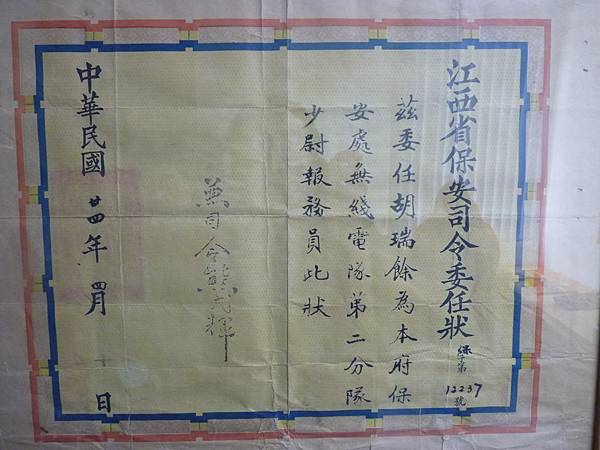 江西省保安司令委任狀
保字第
12237
號
茲委任胡瑞餘為本府保
安處無綫電隊第二分隊
少尉報務員此狀
兼司令熊式輝
中華民國廿四年四月
日